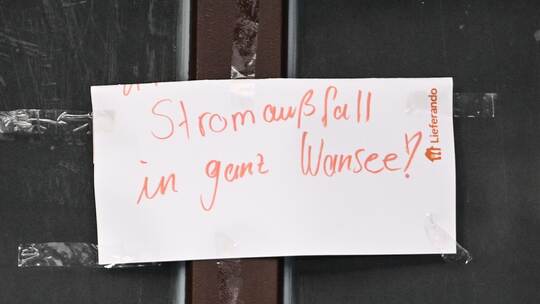 Stromaußfall
in ganz Wansee!
Lieferando